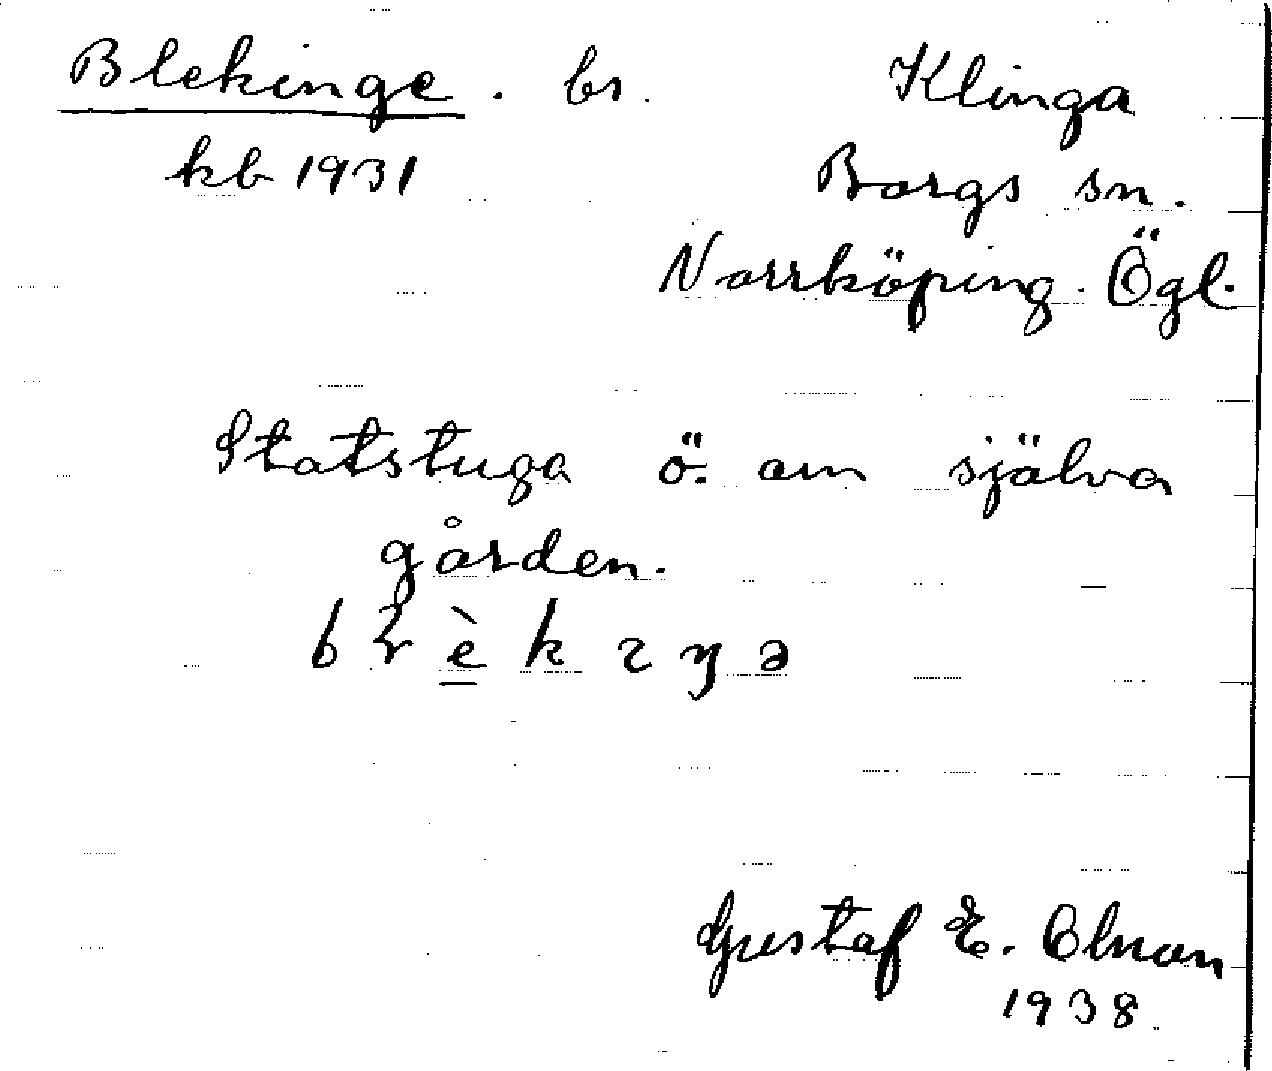 Blekinge. br. Klinga
kb 1931 Borgs sn.
Norrköping. Ögl.
Statstuga ö. om själva
gården.
Gustaf E. Olman
1938